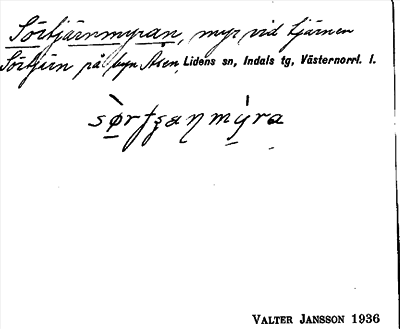 Sörtjärnmyran, myr vid tjärnen
Sörtjärn på byn Åsen, Lidens sn, Indals tg, Västernorrl. l.
VALTER JANSSON 1936